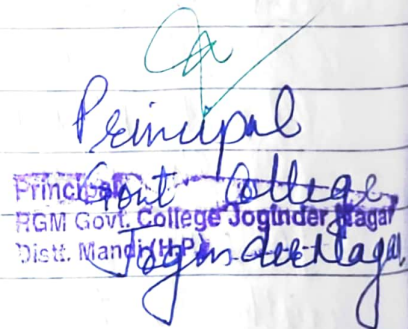 Principal
Govt College
Joginder Nagar
Principal
RGM Govt. College Joginder Nagar
Distt. Mandi (H.P.)